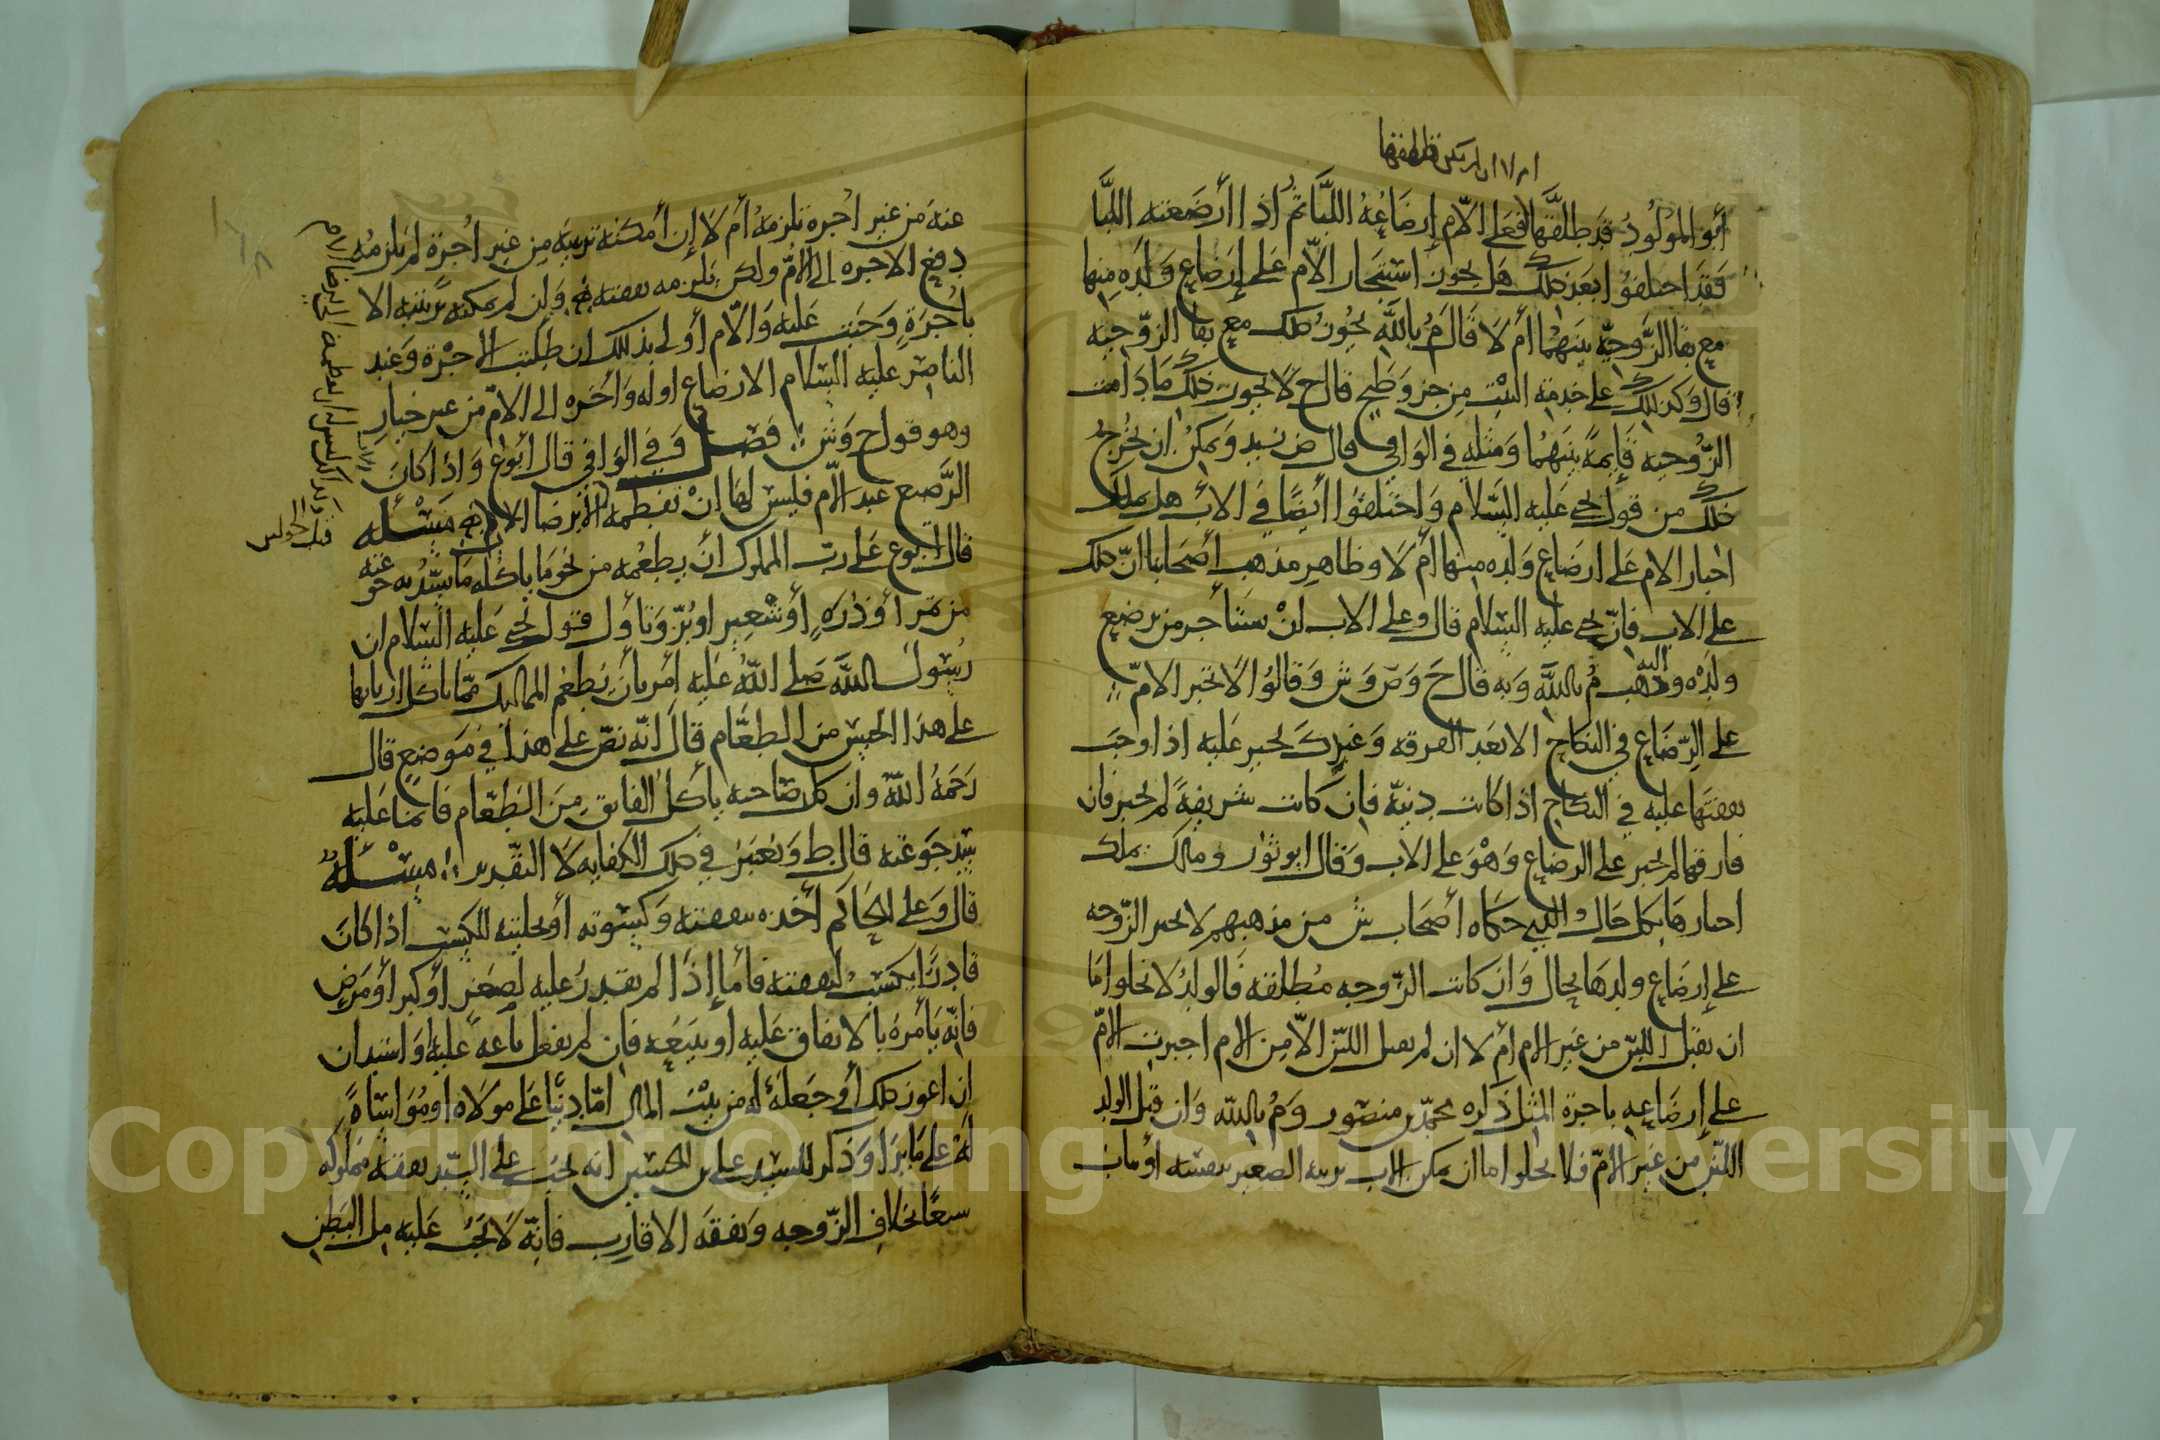 ام لا ان لم يكن قد طلقها
أبو المولود قد طلقها فعلى الأم إرضاعه اللبأ ثم اذا أرضعته اللبأ
فقد اختلفوا بعد ذلك هل يجوز استئجار الأم على إرضاع ولده منها
مع بقا الزوجية بينهما أم لا قال م بالله يجوز ذلك مع بقا الزوجيه
قال وكذلك على خدمة البيت من خبز وطبخ قال ح لا يجوز ذلك ما دامت
الزوجيه قايمة بينهما ومثله في الوافي قال ض زيد ويمكن ان يخرج
ذلك من قول يحيى عليه السلام واختلفوا أيضا في الأب هل يملك
اجبار الام على ارضاع ولده منها أم لا وظاهر مذهب أصحابنا ان ذلك
على الاب فان يحيى عليه السلام قال وعلى الاب ان يستأجر من يرضع
ولده وذهب اليه م بالله وبه قال ح وص وش وقالوا لا تجبر الام
على الرضاع في النكاح الا بعد الفرقه وعند ك يجبر عليه اذا وجبت
نفقتها عليه في النكاح اذا كانت دنيه فان كانت شريفة لم تجبر فان
فارقها لم تجبر على الرضاع وهو على الاب وقال ابو ثور ومالك يملك
اجبارها بكل حال والذي حكاه أصحاب ش من مذهبهم لا تجبر الزوجه
على إرضاع ولدها بحال وان كانت الزوجه مطلقه فالولد لا يخلوا اما
ان يقبل اللبن من غير الام أم لا ان لم يقبل اللبن الا من الام اجبرت الام
على إرضاعه باجرة المثل ذكره محمد بن منصور وم بالله وان قبل الولد
اللبن من غير الأم فلا يخلوا اما ان يمكن الاب تربيه الصغير بنفسه أو بنائب
عنه من غير اجرة تلزمه أم لا إن أمكنه تربيته من غير اجرة لم يلزمه
دفع الاجره الى الام ولكن يلزمه نفقته وإن لم يمكنه تربيته الا
باجرة وجبت عليه والام أولى بذلك ان طلبت الاجرة وعند
الناصر عليه السلام الارضاع اوله وأخره الى الام من غير خيار
وهو قول ح وش فصل وفي الوافي قال أبو ع واذا كان
الرضيع عبد الام فليس لها ان تفطمه الا برضا الاب مسئله
قال ابو ع على رب المملوك أن يطعمه من نحو ما ياكله ما يسد به جوعته
من تمر أو ذره أو شعير او بر وتأول قول يحيى عليه السلام ان
رسول الله صلى الله عليه أمر بأن يطعم المماليك مما ياكل اربابها
على هذا الجنس من الطعام قال انه نص على هذا في موضع قال
رحمه الله وان كان صاحبه يأكل الفايق من الطعام فانما عليه
سد جوعته قال ط ويعتبر في ذلك الكفايه لا التقدير مسئله
قال وعلى الحاكم أخذه بنفقته وكسوته أو تخليته للكسب اذا كان
قادرا يكسب لنفقته فأما إذا لم يقدر عليه لصغر أو كبر أو مرض
فانه يأمره بالانفاق عليه او ببيعه فان لم يفعل باعه عليه واستدان
ان اعوز ذلك أو جعله له من بيت المال اما دينا على مولاه او مواساة
له على ما يرا وذكر السيد على بن الحسين انه يجب على السيد نفقه مملوكه
سبعا بخلاف الزوجه ونفقه الاقارب فانه لا تجب عليه مل البطن
Copyright © King Saud University